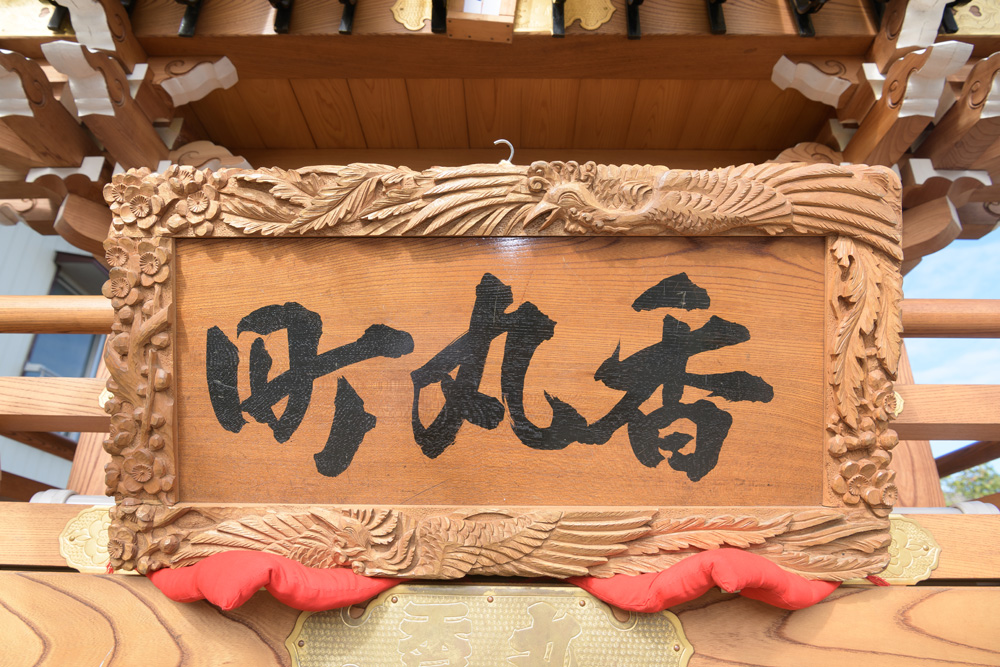 香丸町